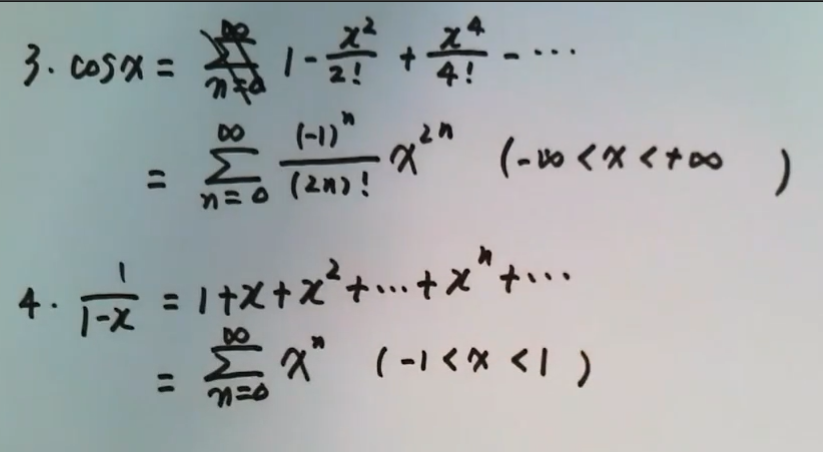 3. cosx = 1 - x²/2! + x⁴/4! - ⋯
= ∑_{n=0}^{∞} (-1)ⁿ/(2n)! x²ⁿ (-∞ < x < +∞ )
4. 1/(1-x) = 1 + x + x² + ⋯ + xⁿ + ⋯
= ∑_{n=0}^{∞} xⁿ (-1 < x < 1 )